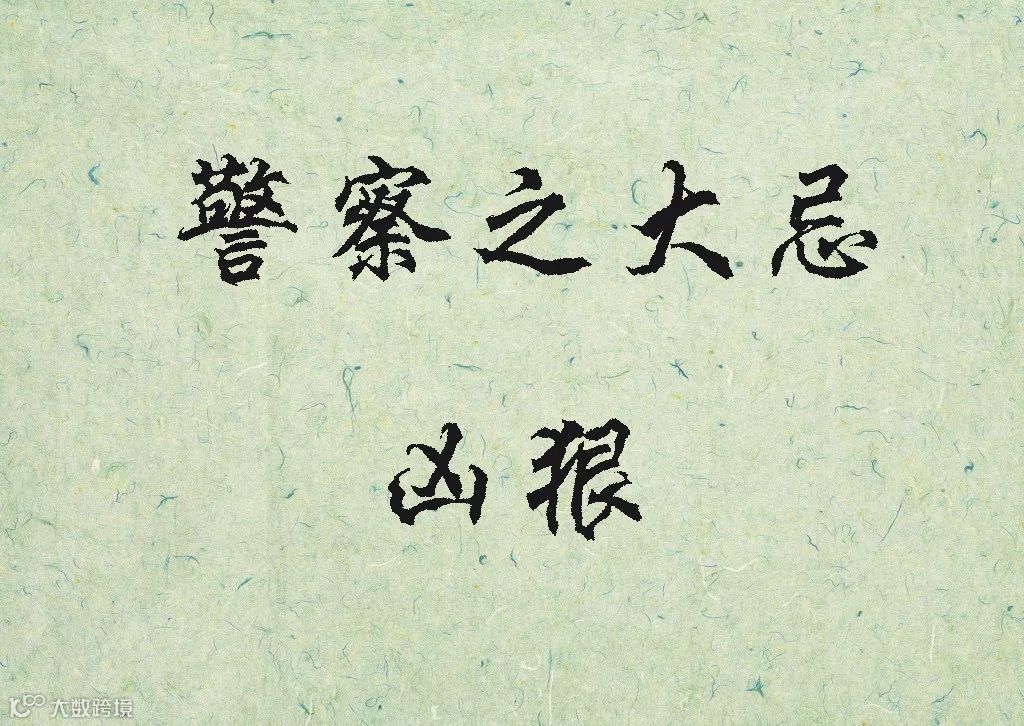 警察之大忌
凶狠
大数跨境